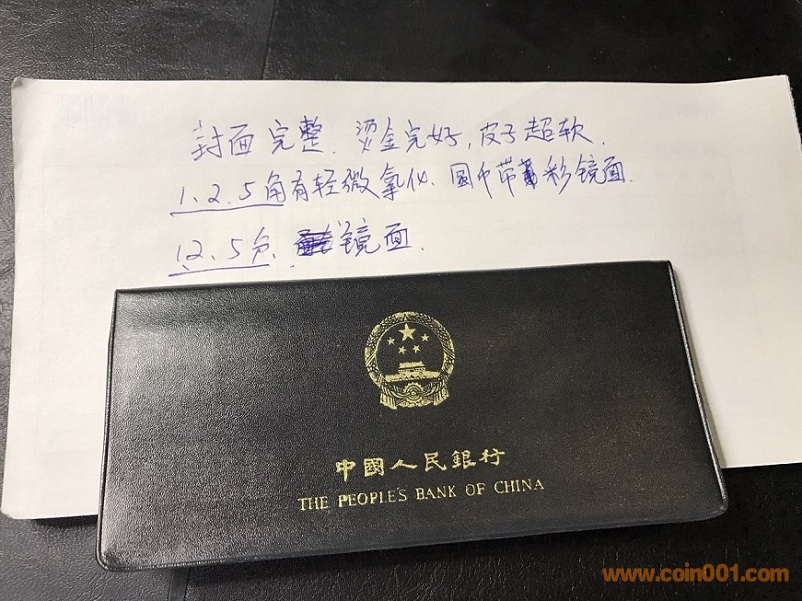 封面完整、烫金完好,皮子超软.
1、2、5角有轻微氧化、国币带彩镜面.
1、2、5分、镜面.
中國人民銀行
THE PEOPLE'S BANK OF CHINA
www.coin001.com